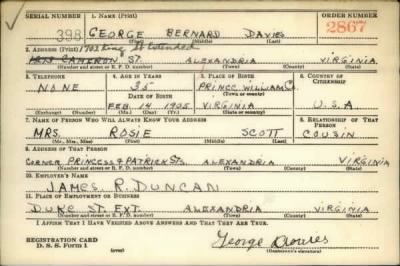 SERIAL NUMBER 1. NAME (Print) ORDER NUMBER
398 GEORGE BERNARD DAVIES 2867
(First) (Middle) (Last)
2. ADDRESS (Print) 1702 King St Extended
CAMERON ST. ALEXANDRIA VIRGINIA
(Number and street or R. F. D. number) (Town) (County) (State)
3. TELEPHONE 4. AGE IN YEARS 5. PLACE OF BIRTH 6. COUNTRY OF CITIZENSHIP
NONE 35 PRINCE WILLIAM Co.
DATE OF BIRTH (Town or county)
FEB. 14 1905 VIRGINIA U.S.A
(Exchange) (Number) (Mo.) (Day) (Yr.) (State or country)
7. NAME OF PERSON WHO WILL ALWAYS KNOW YOUR ADDRESS 8. RELATIONSHIP OF THAT PERSON
MRS. ROSIE SCOTT COUSIN
(Mr., Mrs., Miss) (First) (Middle) (Last)
9. ADDRESS OF THAT PERSON
CORNER PRINCESS & PATRICK STS. ALEXANDRIA VIRGINIA
(Number and street or R. F. D. number) (Town) (County) (State)
10. EMPLOYER'S NAME
JAMES R. DUNCAN
11. PLACE OF EMPLOYMENT OR BUSINESS
DUKE ST. EXT. ALEXANDRIA VIRGINIA
(Number and street or R. F. D. number) (Town) (County) (State)
I AFFIRM THAT I HAVE VERIFIED ABOVE ANSWERS AND THAT THEY ARE TRUE.
REGISTRATION CARD George
D. S. S. Form 1 (over) (Registrant's signature)